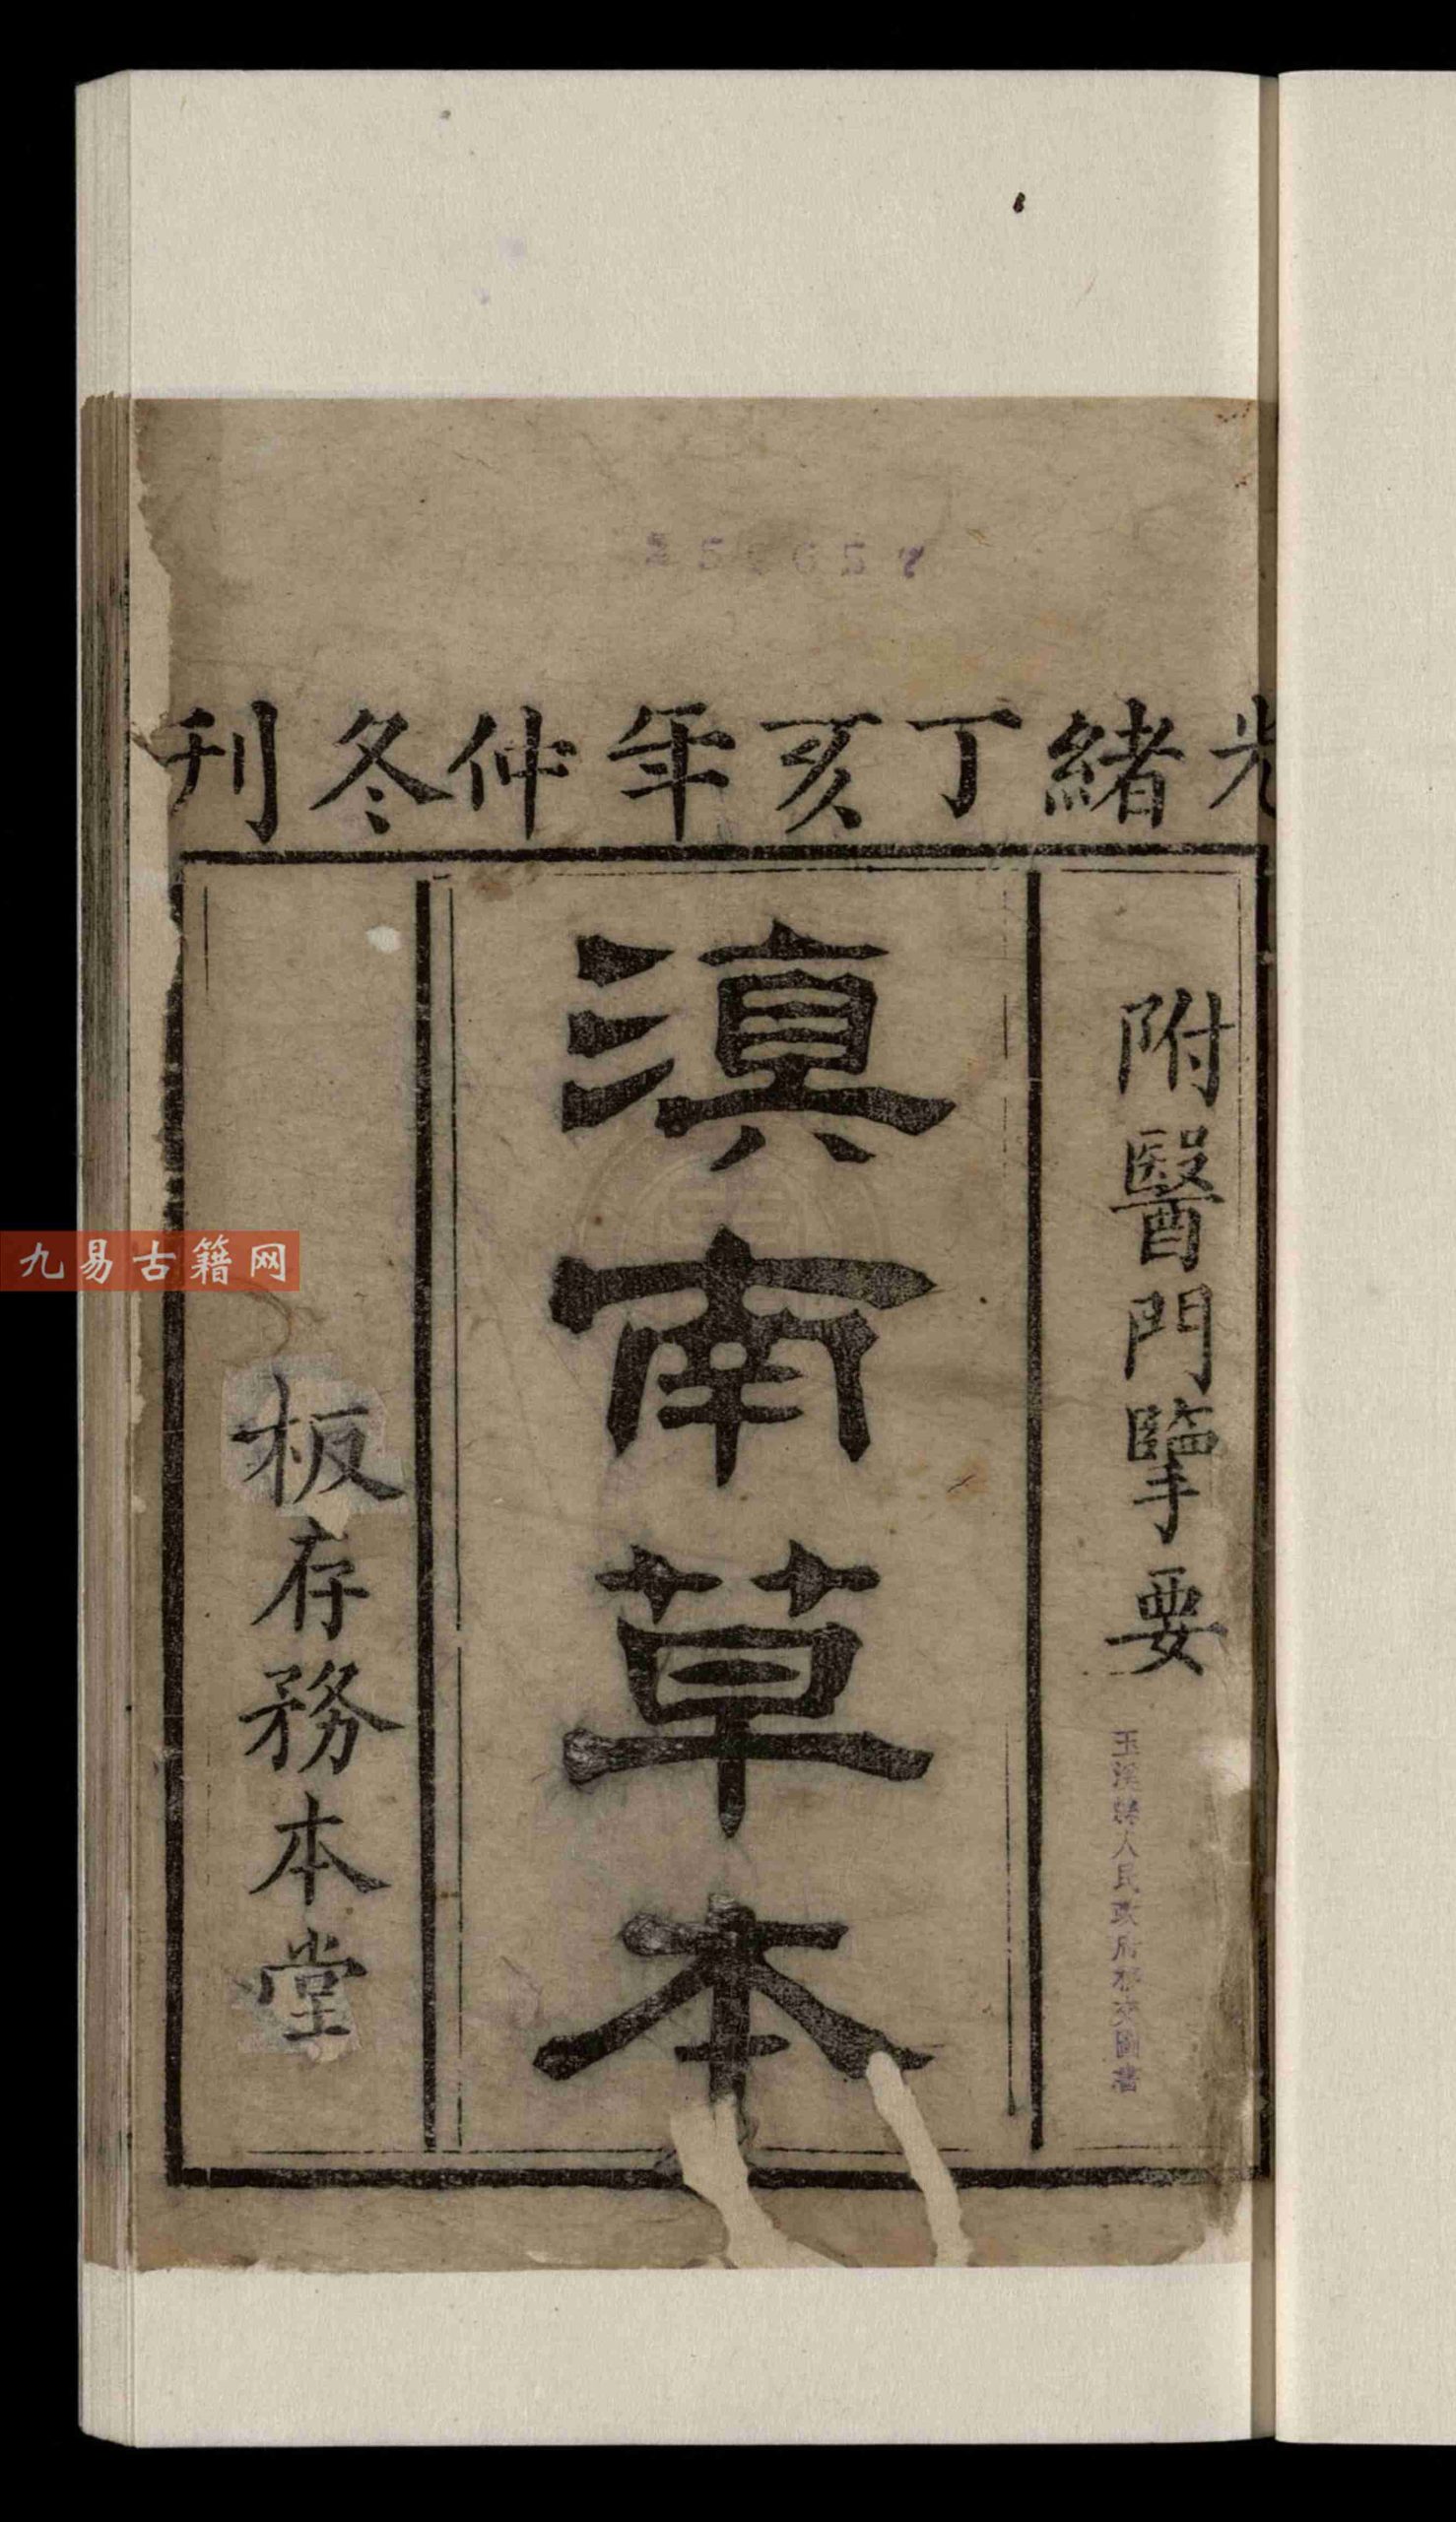 光緒丁亥年仲冬刊
附醫門擥要
滇南草本
板存務本堂
玉溪縣人民政府移交圖書
九易古籍网